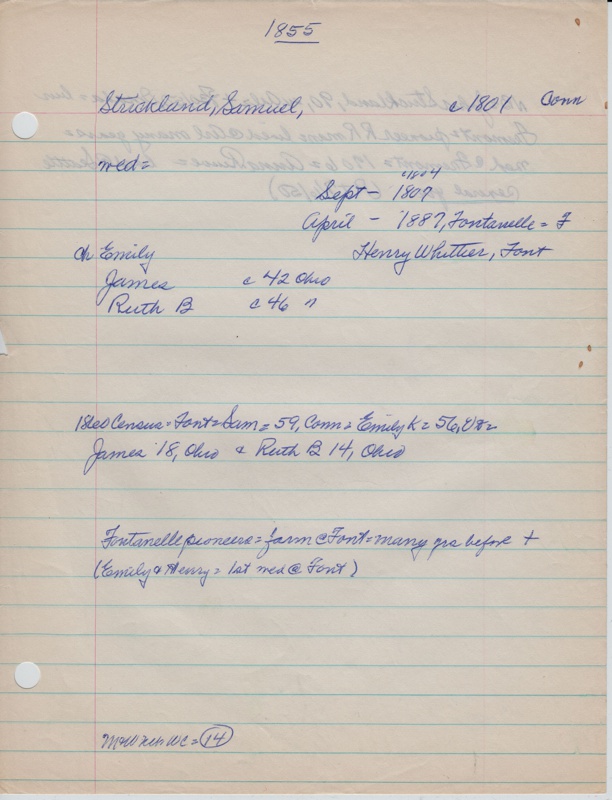 1855
Strickland, Samuel, c 1801 Conn
med =
c1804
Sept - 1807
April - 1887, Fontanelle = F
ch Emily Henry Whittier, Font
James c 42 Ohio
Ruth B c 46 "
1860 Census = Font = Sam = 59, Conn = Emily K = 56, Vt =
James 18, Ohio & Ruth B 14, Ohio
Fontanelle pioneers = farm @ Font = many yrs before +
(Emily & Henry = 1st med @ Font)
= 14